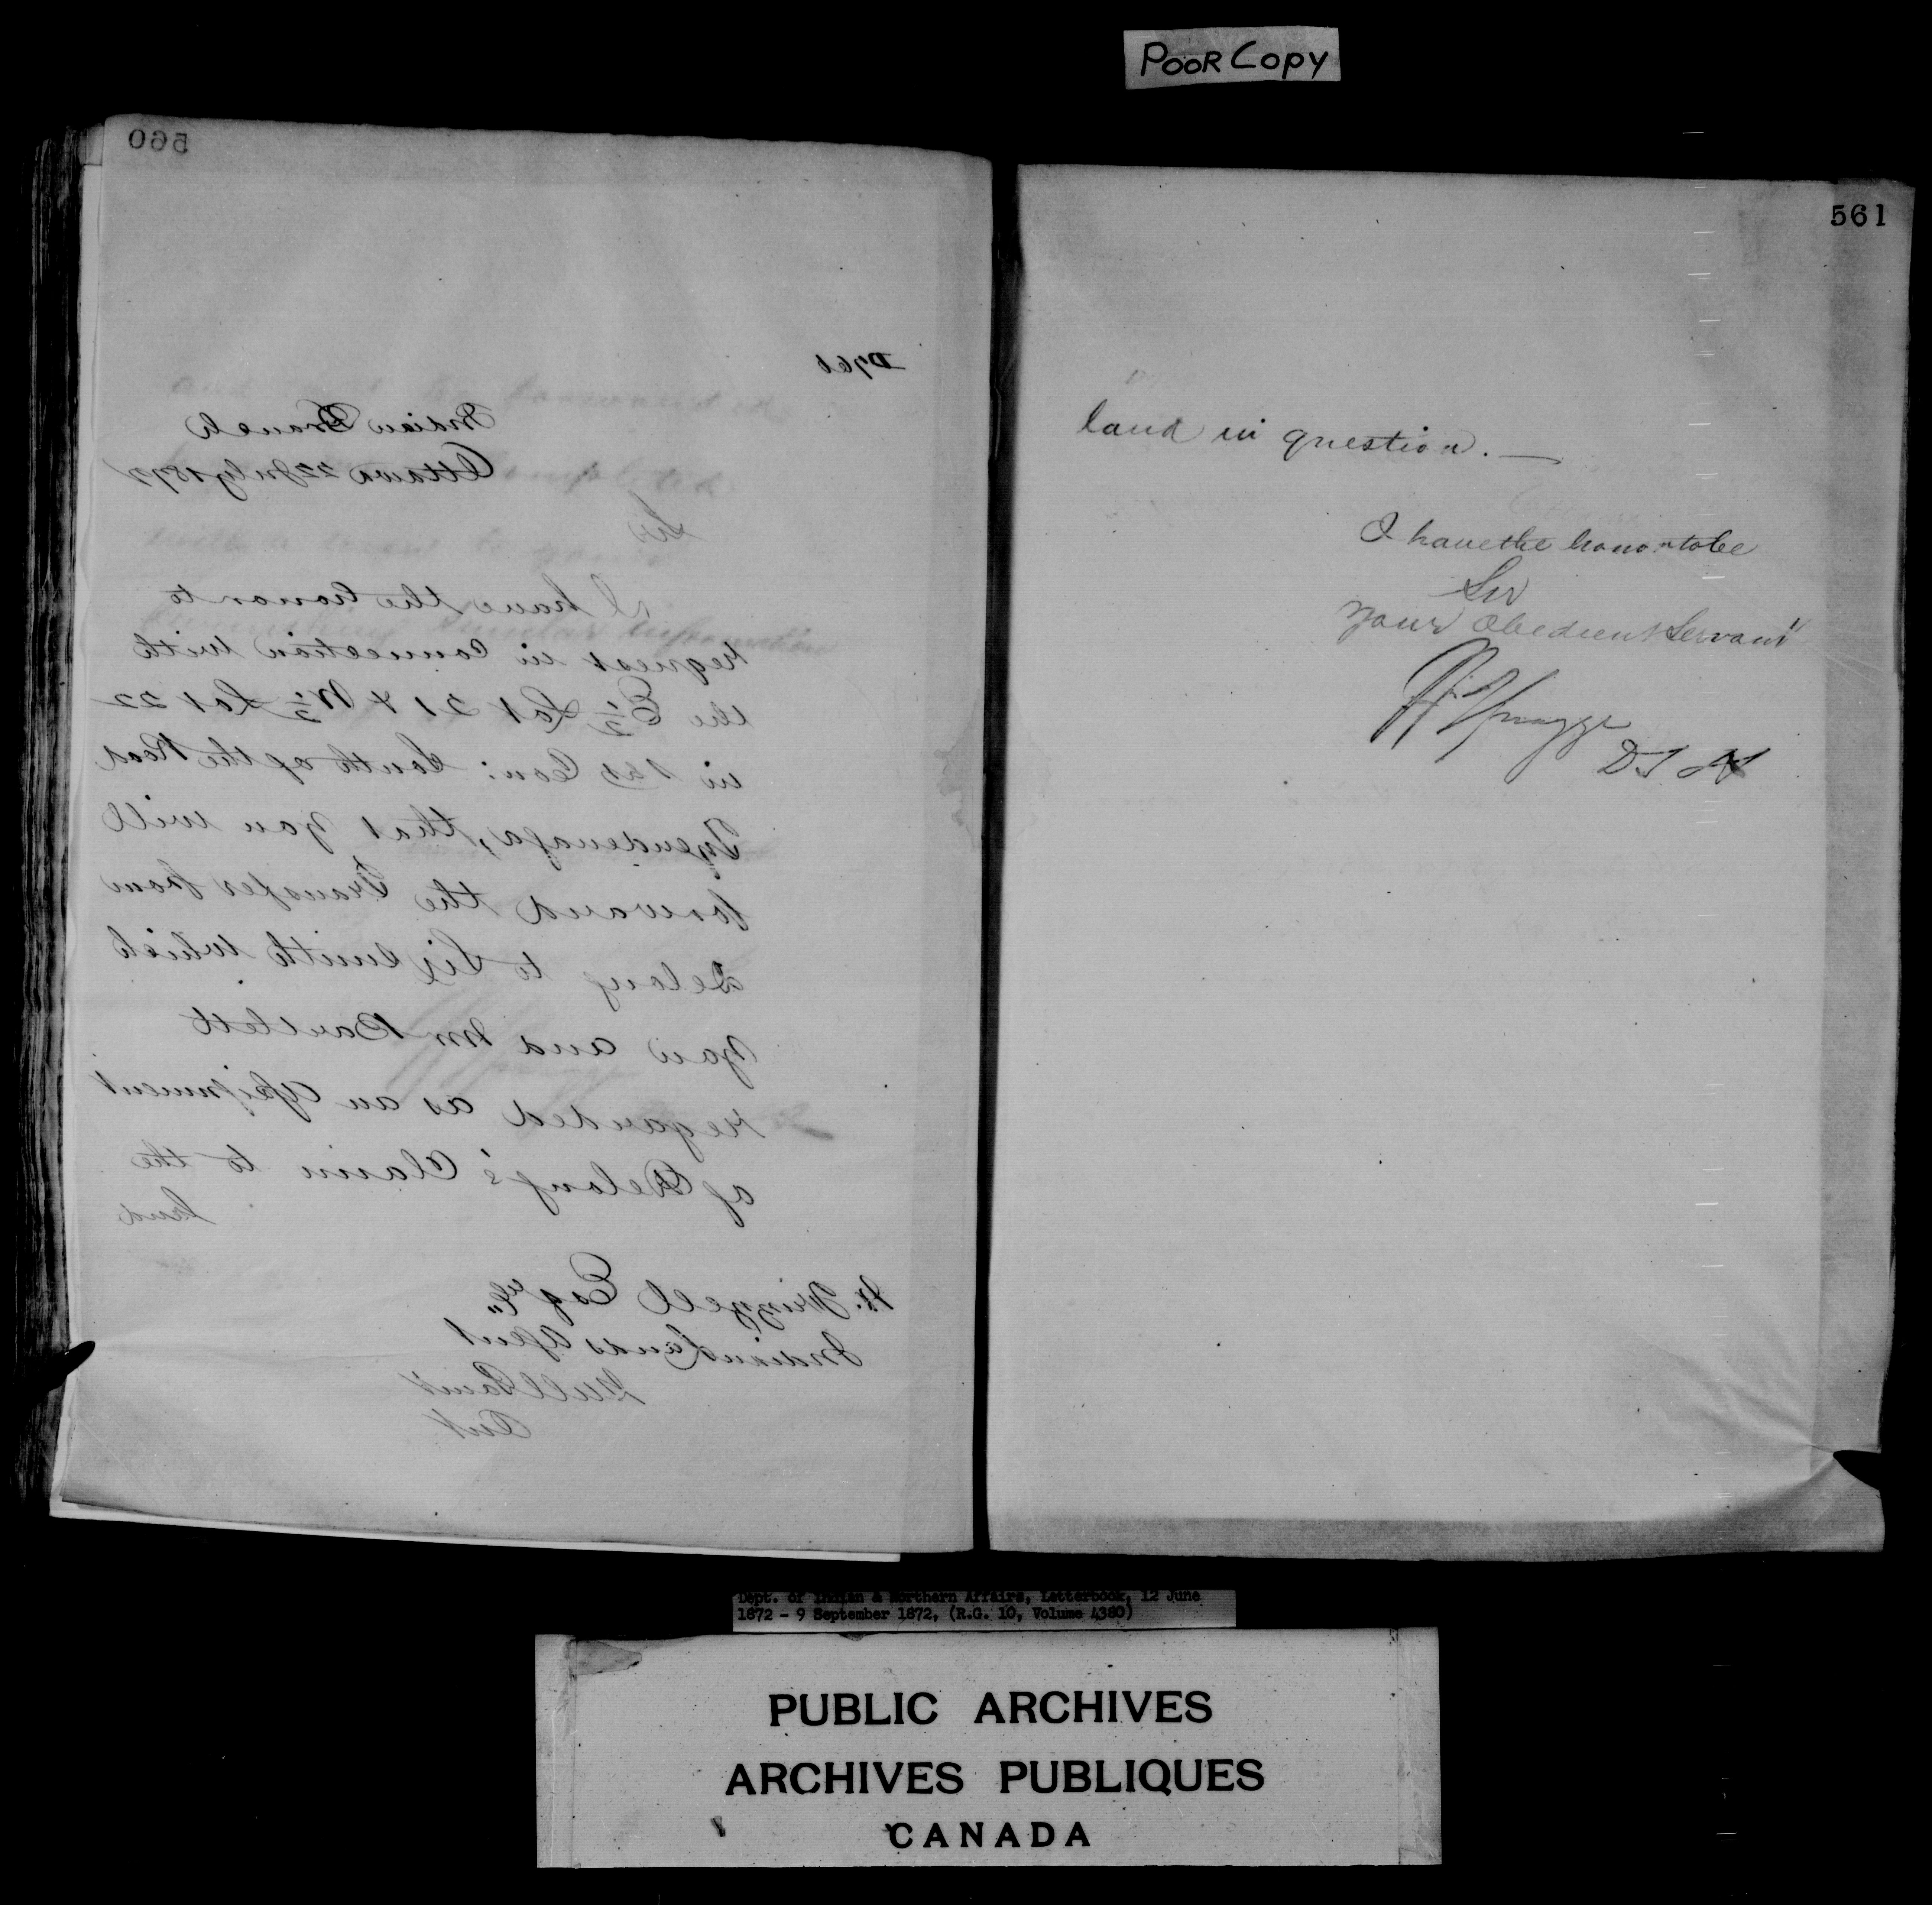 POOR Copy
560
D966
Indian Branch
Ottawa 22 July 1872
Sir
I have the honor to
request in connection with
the E½ Lot 21 & W½ Lot 22
in 1st Con: South of the Road
Tyendenaga, that you will
forward the Transfer from
Delong to Sixsmith which
you and Mr Bartlett
regarded as an Assignment
of Delong's Claim to the
land
Esqre
Indian Lands Agent
Mill Point
Ont
561
land in question. —
I have the honor to be
Sir
Your Obedient Servant
Spragge
DSIA
Dept. of Indian & Northern Affairs, Letterbook, 12 June
1872 - 9 September 1872, (R.G. 10, Volume 4380)
PUBLIC ARCHIVES
ARCHIVES PUBLIQUES
CANADA